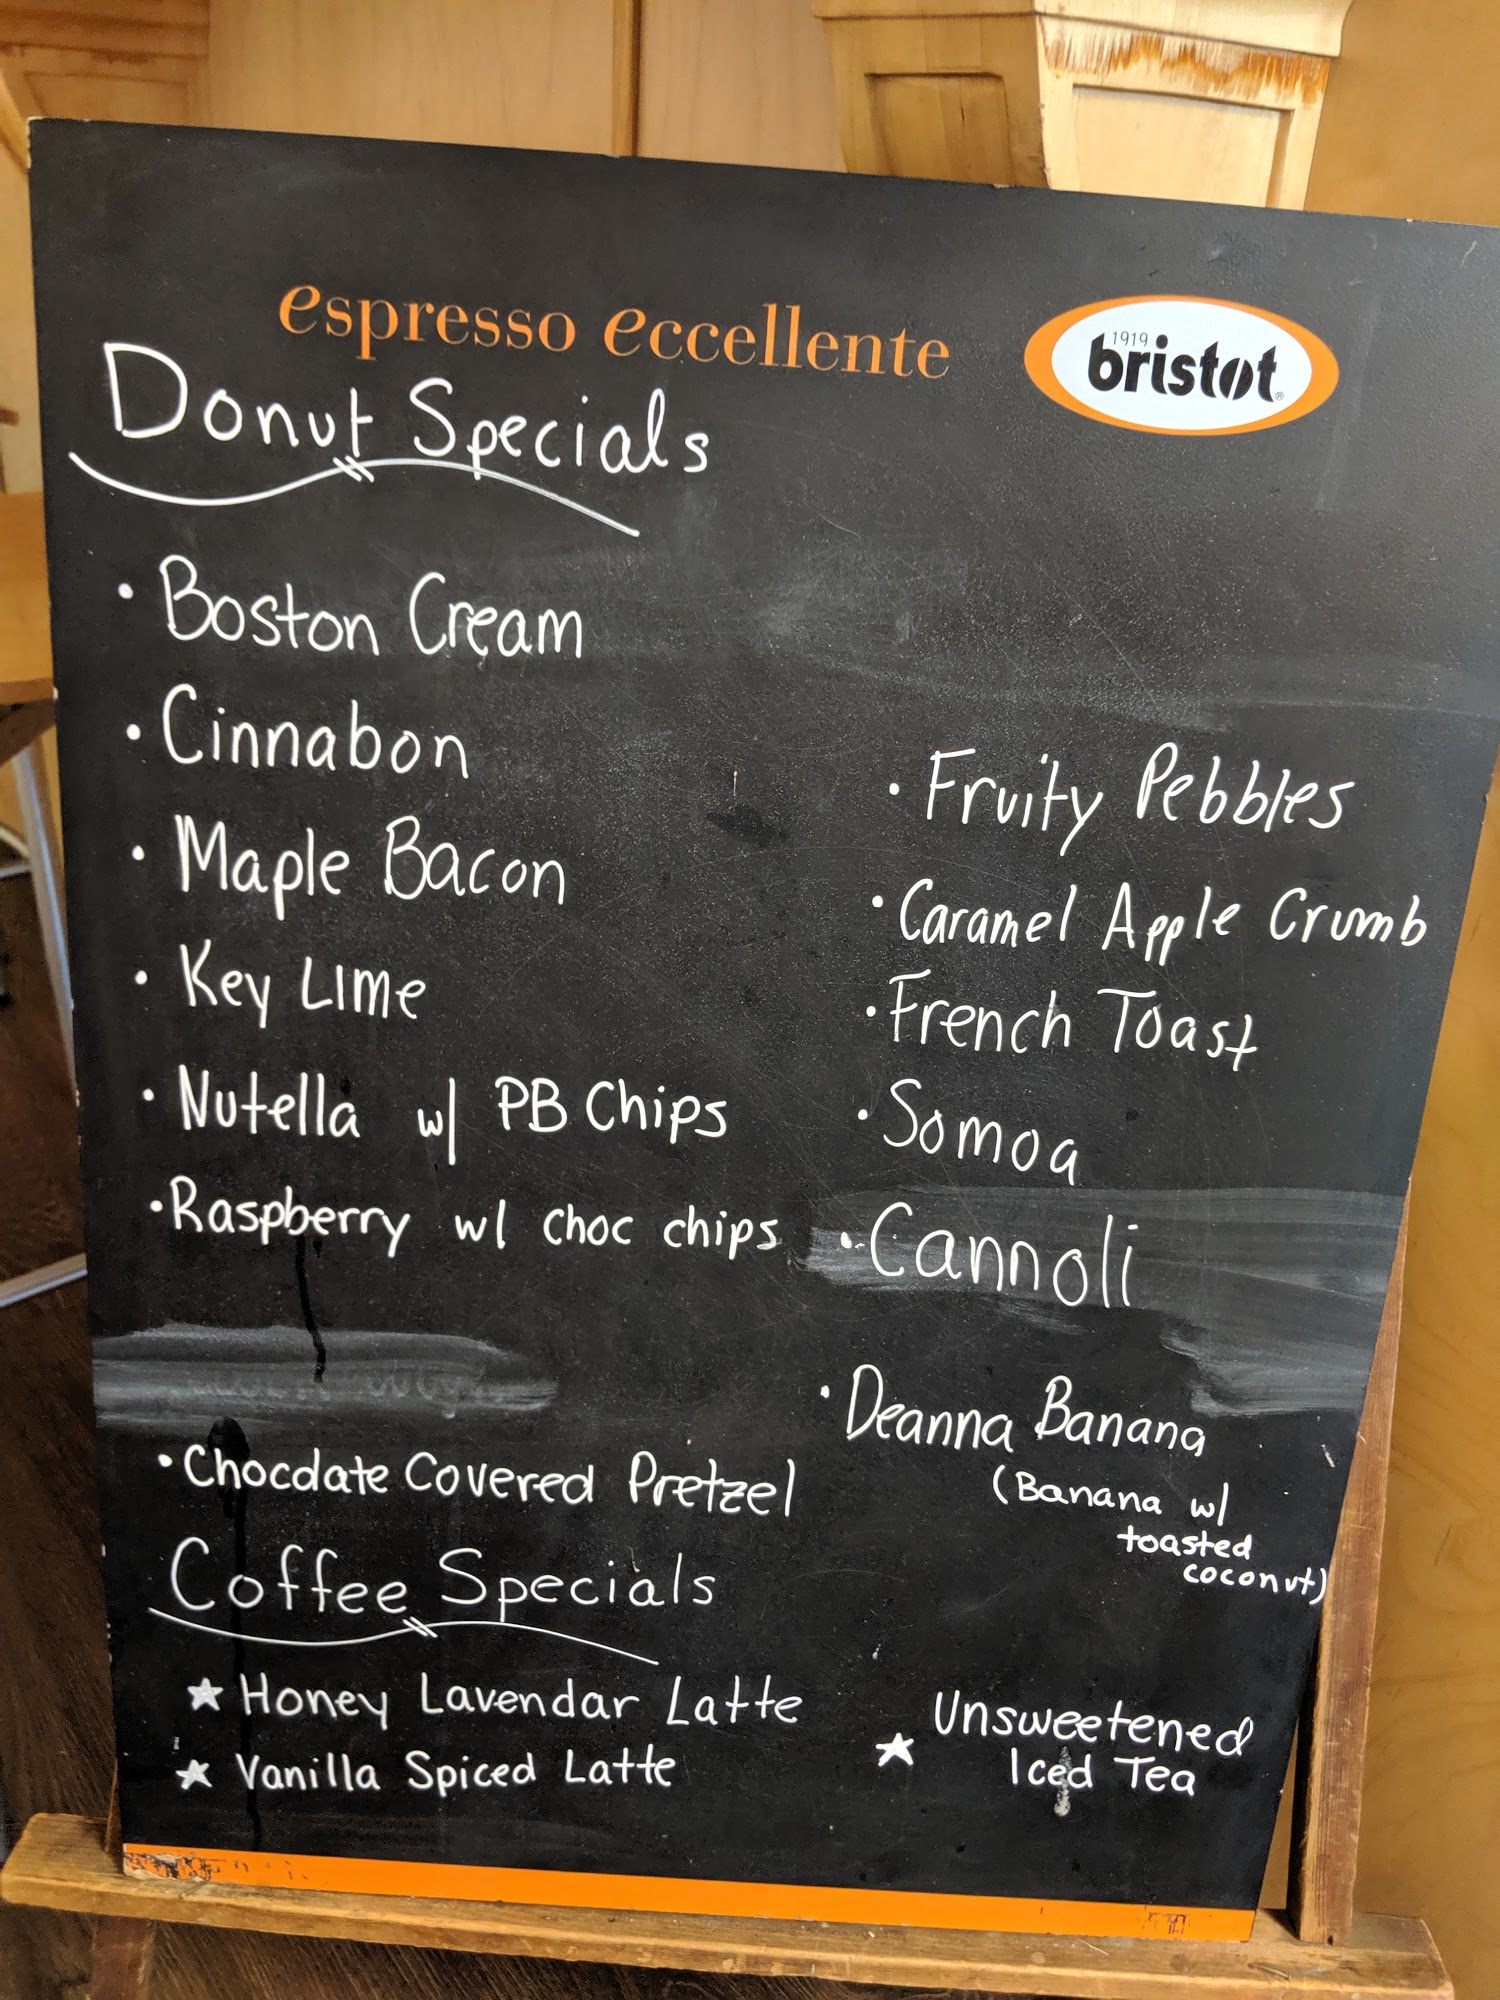 espresso eccellente
1919
bristot®
Donut Specials
• Boston Cream
• Cinnabon
• Maple Bacon
• Key Lime
• Nutella w/ PB Chips
• Raspberry w/ choc chips
• Chocolate Covered Pretzel
• Fruity Pebbles
• Caramel Apple Crumb
• French Toast
• Somoa
• Cannoli
• Deanna Banana
(Banana w/
toasted
coconut)
Coffee Specials
★ Honey Lavendar Latte
★ Vanilla Spiced Latte
★ Unsweetened
Iced Tea